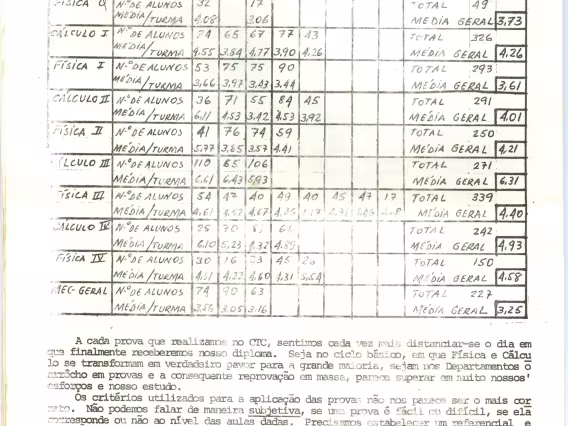 FÍSICA 0 Nº DE ALUNOS 32 17 TOTAL 49
MÉDIA/TURMA 4,08 3,06 MÉDIA GERAL 3,73
CÁLCULO I Nº DE ALUNOS 74 65 67 77 43 TOTAL 326
MÉDIA/TURMA 4,55 3,84 4,77 3,90 4,26 MÉDIA GERAL 4,26
FÍSICA I Nº DE ALUNOS 53 75 75 90 TOTAL 293
MÉDIA/TURMA 3,66 3,97 3,43 3,44 MÉDIA GERAL 3,61
CÁLCULO II Nº DE ALUNOS 36 71 55 84 45 TOTAL 291
MÉDIA/TURMA 6,11 4,53 3,42 4,53 3,92 MÉDIA GERAL 4,01
FÍSICA II Nº DE ALUNOS 41 76 74 59 TOTAL 250
MÉDIA/TURMA 5,77 3,85 3,57 4,41 MÉDIA GERAL 4,21
CÁLCULO III Nº DE ALUNOS 110 65 106 TOTAL 271
MÉDIA/TURMA 6,61 6,47 5,93 MÉDIA GERAL 6,31
FÍSICA III Nº DE ALUNOS 54 47 40 49 40 45 47 17 TOTAL 339
MÉDIA/TURMA 4,61 4,67 MÉDIA GERAL 4,40
CÁLCULO IV Nº DE ALUNOS 25 70 61 TOTAL 242
MÉDIA/TURMA 6,10 5,23 4,32 4,85 MÉDIA GERAL 4,93
FÍSICA IV Nº DE ALUNOS 30 16 45 TOTAL 150
MÉDIA/TURMA 4,22 4,60 4,31 5,54 MÉDIA GERAL 4,58
MEC-GERAL Nº DE ALUNOS 74 90 63 TOTAL 227
MÉDIA/TURMA 3,56 3,05 3,16 MÉDIA GERAL 3,25
A cada prova que realizamos no CTC, sentimos cada vez mais distanciar-se o dia em
que finalmente receberemos nosso diploma. Seja no ciclo básico, em que Física e Cálcu
lo se transformam em verdadeiro pavor para a grande maioria, sejam nos Departamentos o
arrôcho em provas e a consequente reprovação em massa, parece superar em muito nossos'
esforços e nosso estudo.
Os critérios utilizados para a aplicação das provas não nos parece ser o mais cor
reto. Não podemos falar de maneira subjetiva, se uma prova é fácil ou difícil, se ela
corresponde ou não ao nível das aulas dadas. Precisamos estabelecer um referencial e